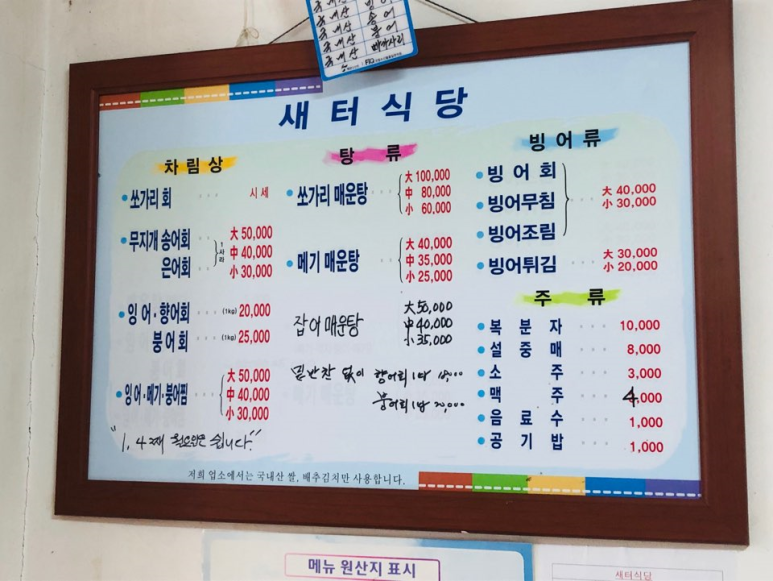 국내산
국내산 송어
국내산 붕어
국내산
새터식당
차림상
쏘가리회 시세
무지개 송어회
은어회
大 50,000
中 40,000
小 30,000
잉어·향어회 (1kg) 20,000
붕어회 (1kg) 25,000
잉어·메기·붕어찜
大 50,000
中 40,000
小 30,000
"1, 4째 월요일은 쉽니다."
탕 류
쏘가리 매운탕
大 100,000
中 80,000
小 60,000
메기 매운탕
大 40,000
中 35,000
小 25,000
잡어 매운탕
大 50,000
中 40,000
小 35,000
밑반찬 없이 향어회
붕어회 20,000
빙어류
빙어회
빙어무침
빙어조림
大 40,000
小 30,000
빙어튀김
大 30,000
小 20,000
주 류
복분자 10,000
설중매 8,000
소주 3,000
맥주 4,000
음료수 1,000
공기밥 1,000
저희 업소에서는 국내산 쌀, 배추김치만 사용합니다.
메뉴 원산지 표시
새터식당